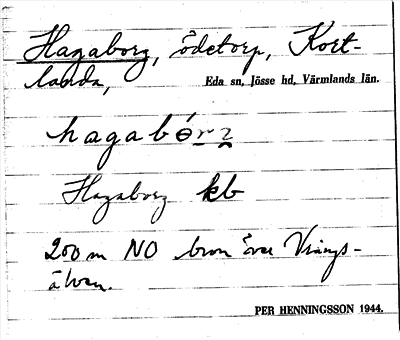 Hagaborg, ödetorp, Kort-
landa,
Eda sn, Jösse hd, Värmlands län.
hagabɵ́rz
Hagaborg kb
200 m NO bron över Vrångs-
älven.
PER HENNINGSSON 1944.